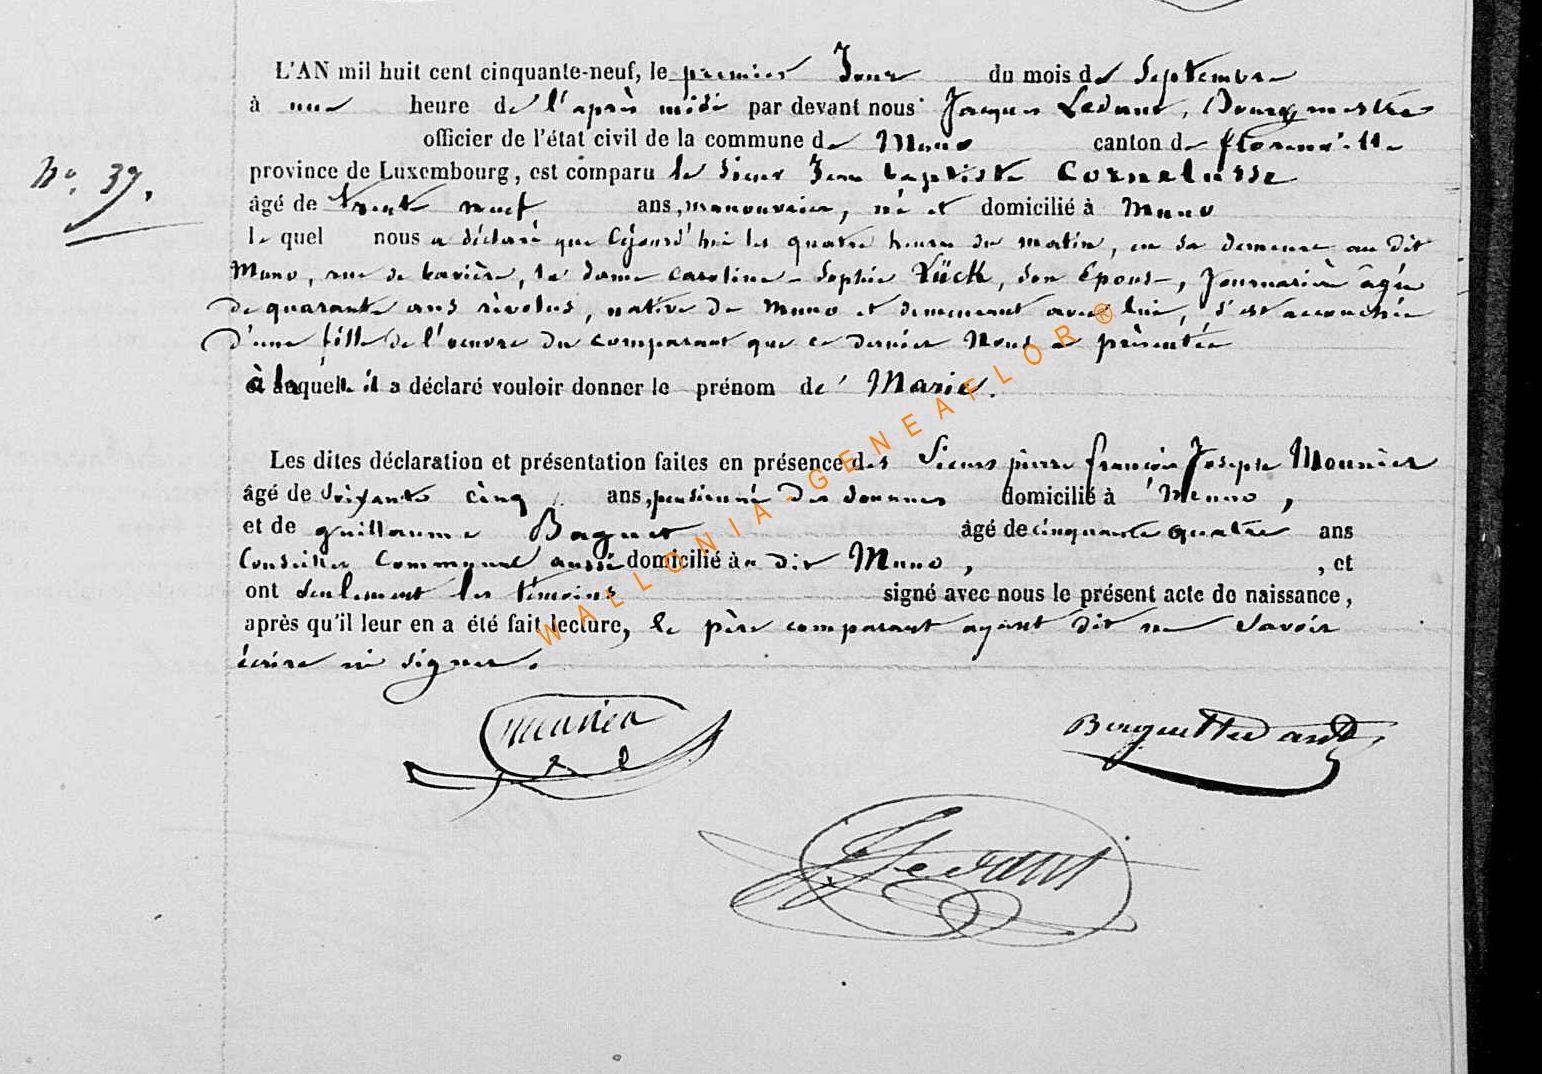 L'AN mil huit cent cinquante-neuf, le premier Jour du mois de Septembre
à une heure de l'après midi par devant nous Jacques Ledant, Bourgmestre
officier de l'état civil de la commune de Muno canton de florenville
N°. 37.
province de Luxembourg, est comparu le Sieur Jean baptiste Cornelusse
âgé de trente neuf ans, manouvrier, né et domicilié à Muno
lequel nous a déclaré que Cejourd'hui les quatre heures du matin, en sa demeure au dit
Muno, rue de bavière, la dame Caroline-Sophie Lück, son Epouse, Journarière âgée
de quarante ans révolus, native de Muno et demeurant avec lui, s'est accouchée
d'une fille de l'oeuvre du comparant que ce dernier Nous a présentée
à laquelle il a déclaré vouloir donner le prénom de Marie.
Les dites déclaration et présentation faites en présence des Sieurs pierre françois Joseph Mounier
âgé de Soixante cinq ans, pensionné des douanes domicilié à Muno,
et de guillaume Baguet âgé de cinquante quatre ans
Conseiller Communal aussi domicilié au dit Muno, , et
ont seulement les témoins signé avec nous le présent acte de naissance,
après qu'il leur en a été fait lecture, le père comparant ayant dit ne savoir
écrire ni signer.
Ledant
WALLONIA-GENEAFLOR®